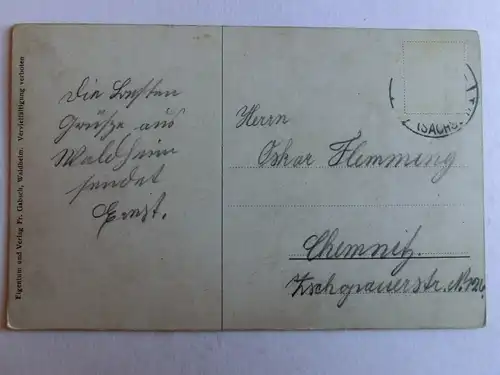 Eigentum und Verlag Fr. Gabsch, Waldheim. Vervielfältigung verboten
Die besten
Grüße aus
Waldheim
sendet
Ernst.
(SACHS.
Herrn
Oskar Flemming
Chemnitz.
Zschopauerstr. N. 126